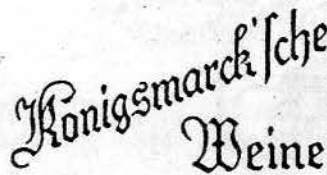 Königsmarck'sche
Weine